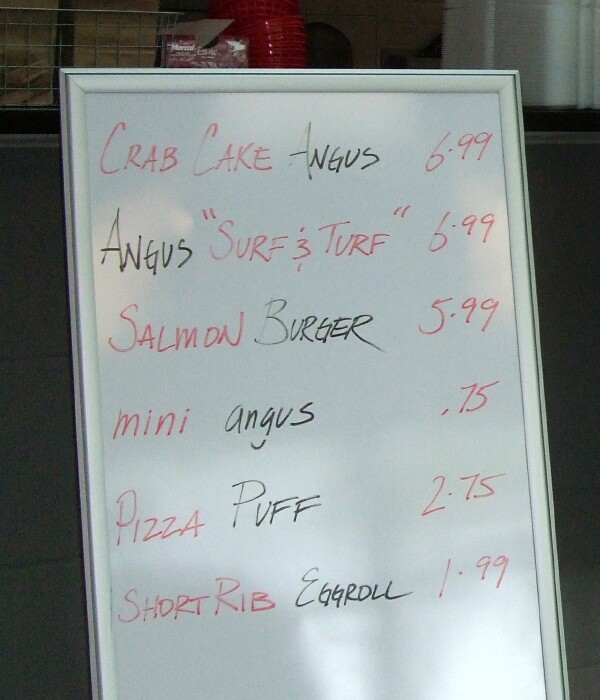 CRAB CAKE ANGUS 6.99
ANGUS "SURF & TURF" 6.99
SALMON BURGER 5.99
mini angus .75
PIZZA PUFF 2.75
SHORT RIB EGGROLL 1.99